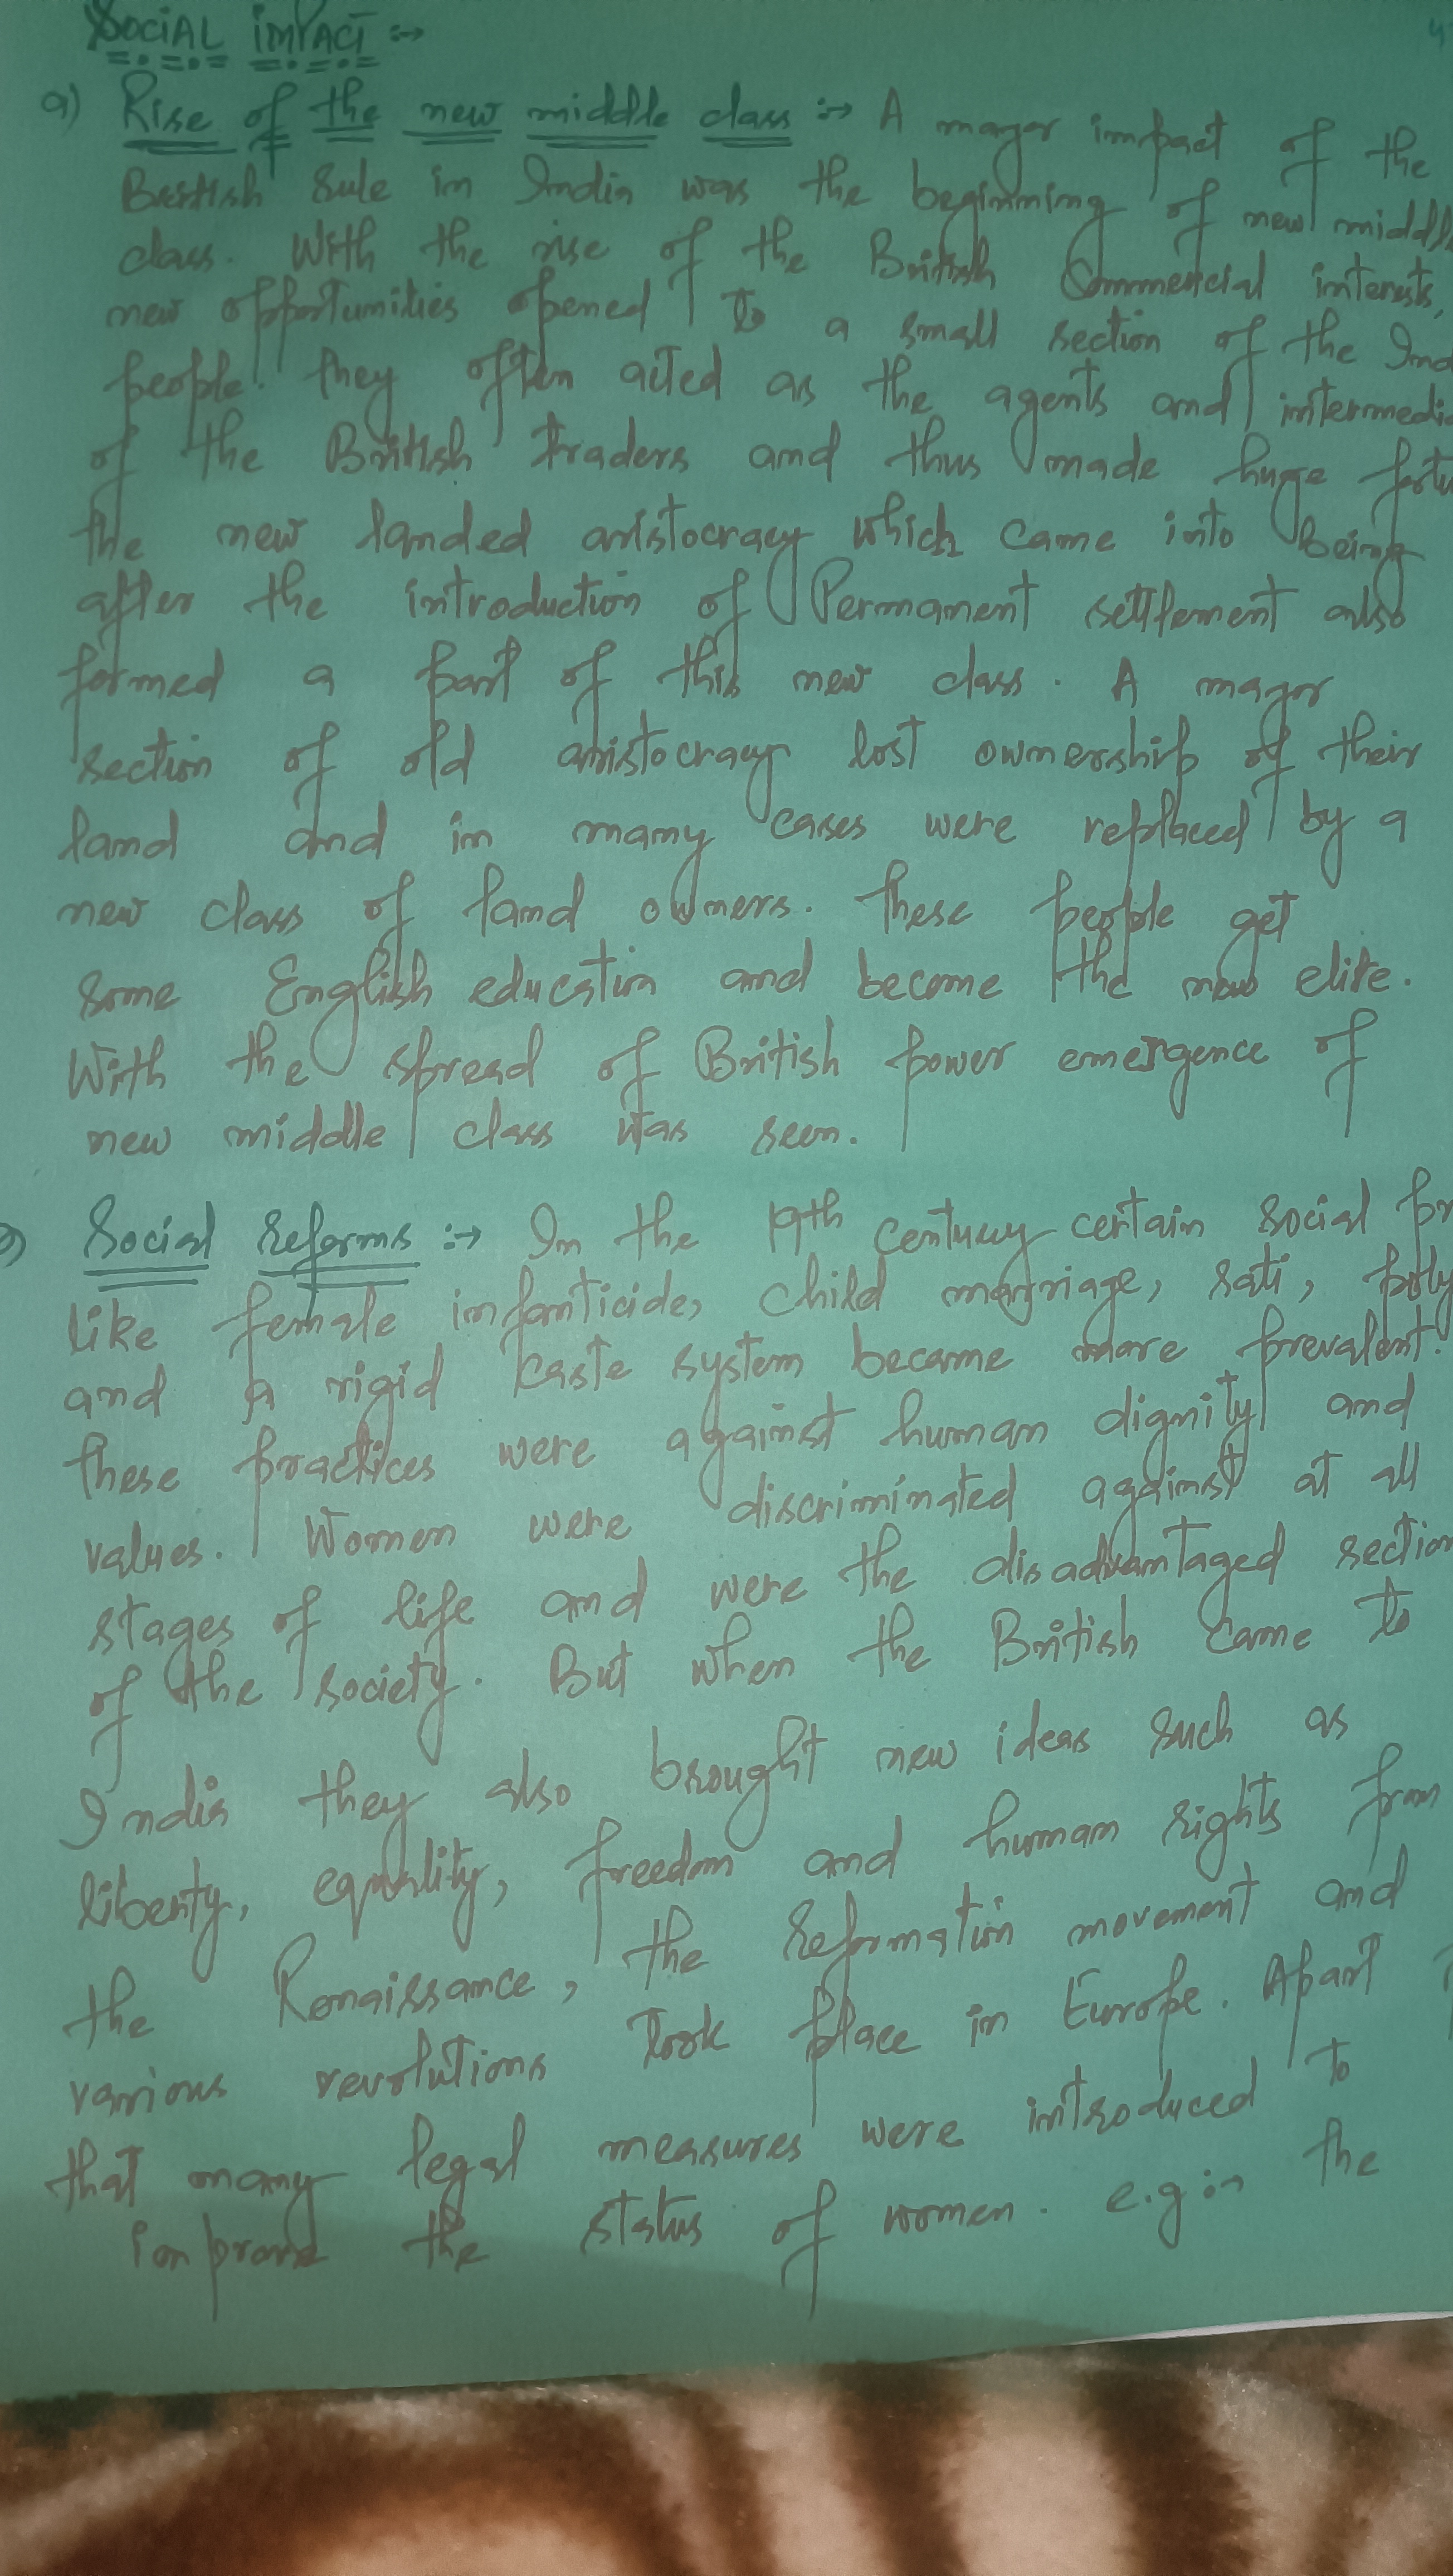 SOCIAL IMPACT :→
4
a) Rise of the new middle class :→ A major impact of the
British Rule in India was the beginning of new middle
class. With the rise of the British Commercial interests,
new opportunities opened to a small section of the Ind
people. They often acted as the agents and intermedia
of the British traders and thus made huge fortu
the new landed aristocracy which came into being
after the introduction of Permanent settlement also
formed a part of this new class. A major
section of old aristocracy lost ownership of their
land and in many cases were replaced by a
new class of land owners. These people get
some English education and become the new elite.
With the spread of British power emergence of
new middle class was seen.
Social Reforms :→ In the 19th century certain social pr
like female infanticide, child marriage, sati, poly
and a rigid caste system became more prevalent.
these practices were against human dignity and
values. Women were discriminated against at all
stages of life and were the disadvantaged section
of the society. But when the British came to
India they also brought new ideas such as
liberty, equality, freedom and human rights from
the Renaissance, the Reformation movement and
various revolutions took place in Europe. Apart
that many legal measures were introduced to
improve the status of women. e.g :→ the